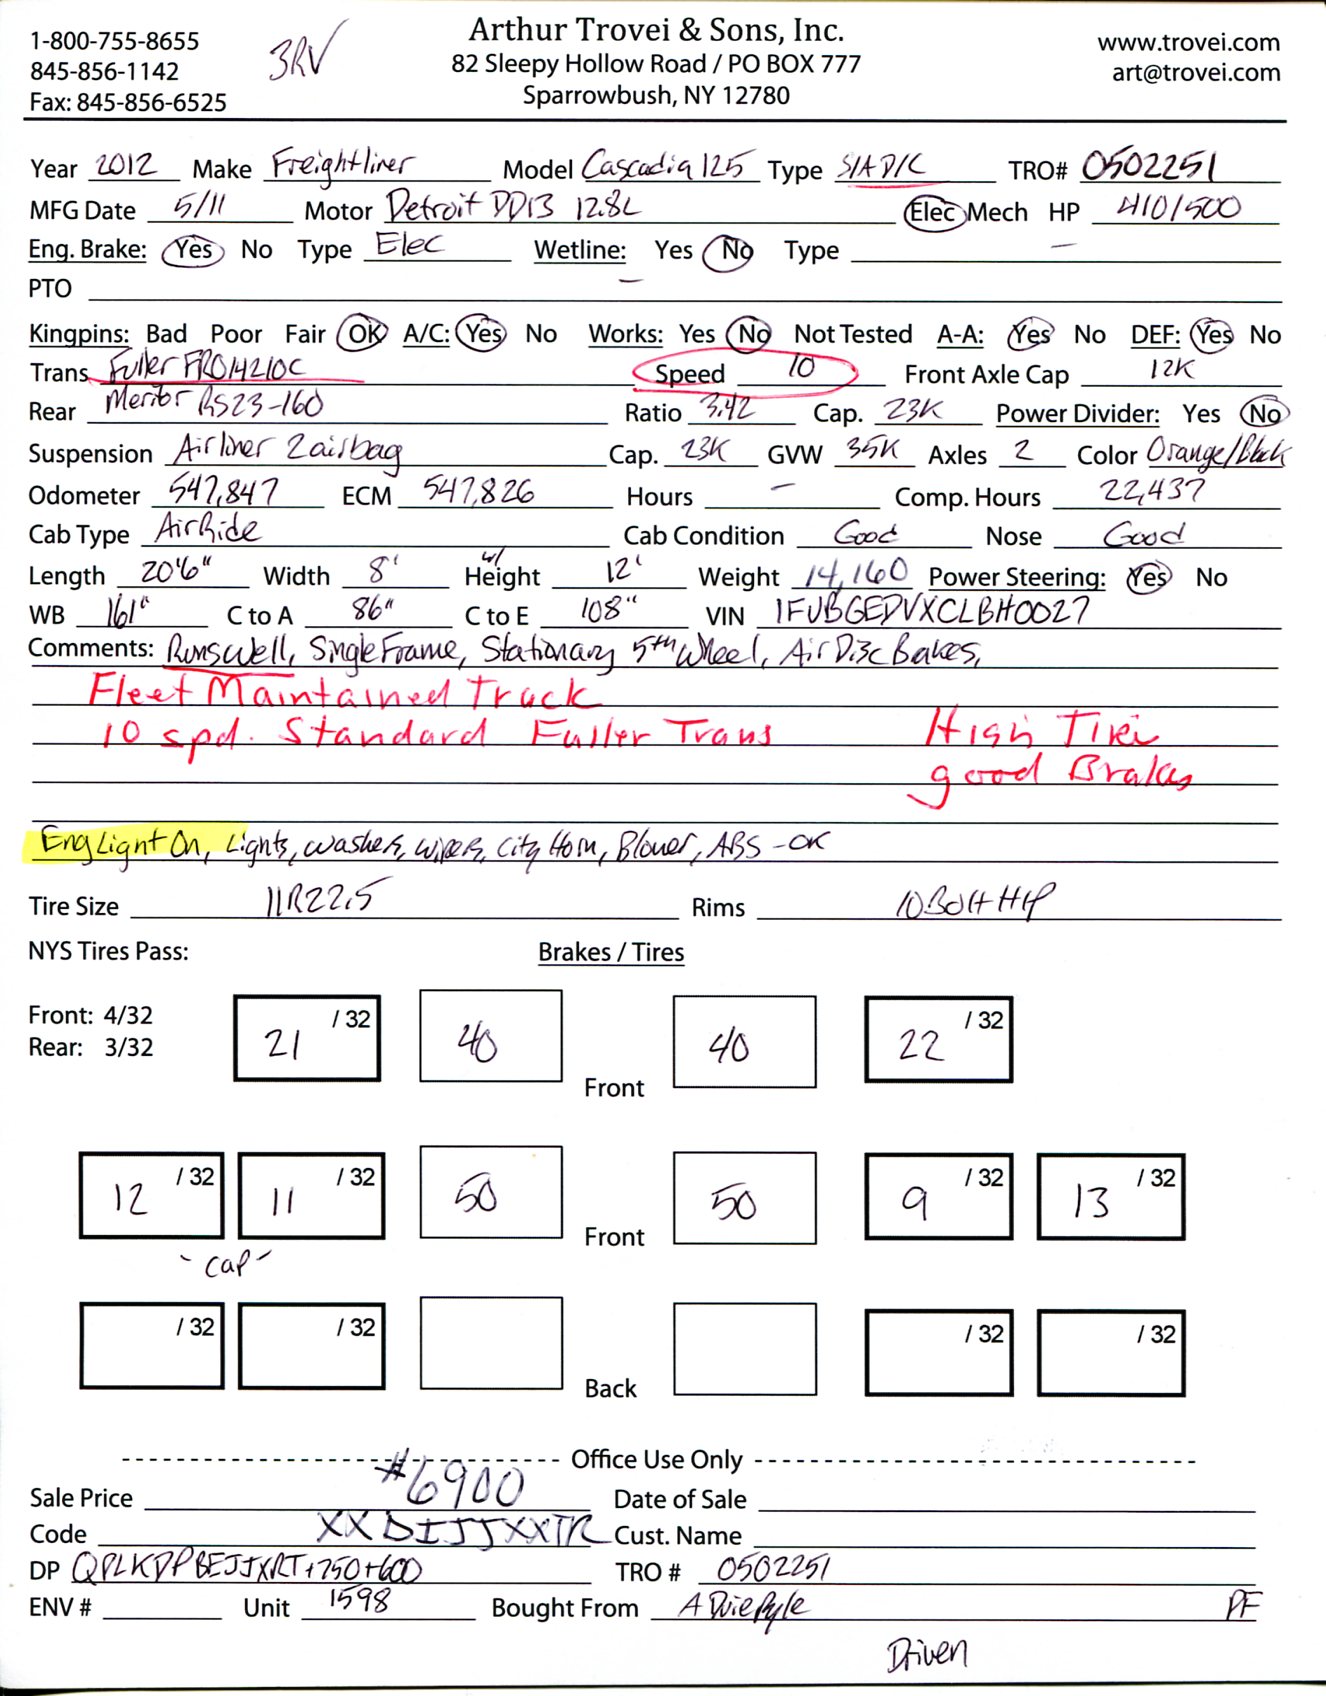 1-800-755-8655
845-856-1142
Fax: 845-856-6525
3RV
Arthur Trovei & Sons, Inc.
82 Sleepy Hollow Road / PO BOX 777
Sparrowbush, NY 12780
www.trovei.com
art@trovei.com
Year 2012 Make Freightliner Model Cascadia 125 Type S/A D/C TRO# 0502251
MFG Date 5/11 Motor Detroit DD13 12.8L Elec Mech HP 410/500
Eng. Brake: Yes No Type Elec Wetline: Yes No Type —
PTO —
Kingpins: Bad Poor Fair OK A/C: Yes No Works: Yes No Not Tested A-A: Yes No DEF: Yes No
Trans Fuller FRO14210C Speed 10 Front Axle Cap 12K
Rear Meritor RS23-160 Ratio 3.42 Cap. 23K Power Divider: Yes No
Suspension Airliner 2 airbag Cap. 23K GVW 35K Axles 2 Color Orange/Black
Odometer 547,847 ECM 547,826 Hours — Comp. Hours 22,437
Cab Type AirRide Cab Condition Good Nose Good
Length 20'6" Width 8' w/ Height 12' Weight 14,160 Power Steering: Yes No
WB 161" C to A 86" C to E 108" VIN 1FUBGEDVXCLBH0027
Comments: Runs well, Single Frame, Stationary 5th Wheel, Air Disc Bakes,
Fleet Maintained Truck
10 spd. Standard Fuller Trans High Tire
good Brakes
Eng Light On, Lights, washers, wipers, City Horn, Blower, ABS - OK
Tire Size 11R22.5 Rims 10 Bolt HP
NYS Tires Pass: Brakes / Tires
Front: 4/32
Rear: 3/32
21 /32 40 Front 40 22 /32
12 /32 11 /32 50 Front 50 9 /32 13 /32
- Cap -
/32 /32 Back /32 /32
Office Use Only
Sale Price #6900 Date of Sale
Code XXDIJJXXTR Cust. Name
DP QPLKDPBEJJXRT+750+600 TRO # 0502251
ENV # Unit 1598 Bought From A Duie Pyle PF
Driven